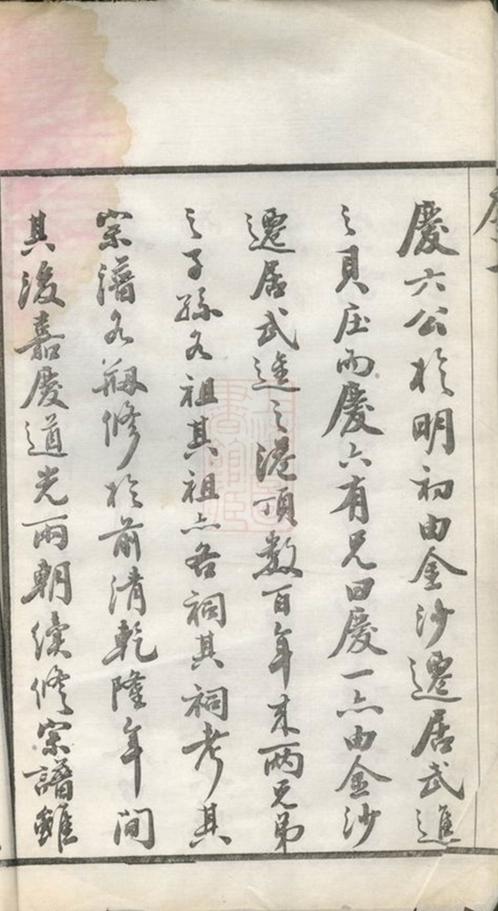 慶六公於明初由金沙遷居武進
之貝庄而慶六有兄曰慶一亦由金沙
遷居武進之港頂數百年來兩兄弟
之子孫各祖其祖亦各祠其祠考其
宗譜各剏修於前清乾隆年間
其後嘉慶道光兩朝續修宗譜雖